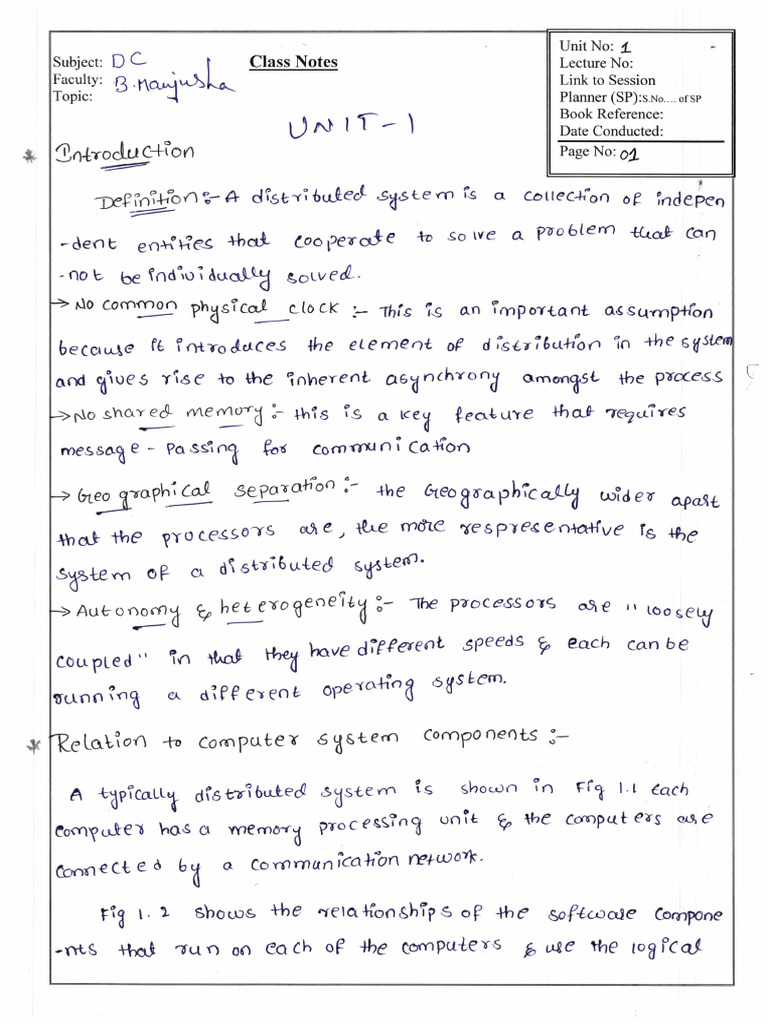 Subject: DC
Class Notes
Faculty: B. Manjusha
Topic:
Unit No: 1
Lecture No:
Link to Session
Planner (SP):S.No.... of SP
Book Reference:
Date Conducted:
Page No: 01
UNIT-1
* Introduction
Definition:- A distributed system is a collection of indepen
-dent entities that cooperate to solve a problem that can
-not be individually solved.
→ No common physical clock :- This is an important assumption
because it introduces the element of distribution in the system
and gives rise to the inherent asynchrony amongst the process
→ No shared memory:- this is a key feature that requires
message-passing for communication
→ Geographical separation:- the Geographically wider apart
that the processors are, the more respresentative is the
system of a distributed system.
→ Autonomy & heterogeneity:- The processors are "loosely
coupled" in that they have different speeds & each can be
running a different operating system.
* Relation to computer system components:-
A typically distributed system is shown in Fig 1.1 Each
computer has a memory processing unit & the computers are
connected by a communication network.
Fig 1.2 shows the relationships of the software compone
-nts that run on each of the computers & use the logical